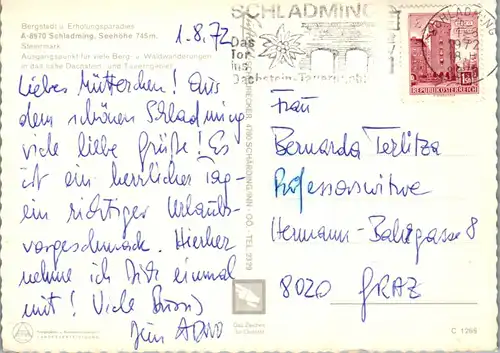 Bergstadt u. Erholungsparadies
A-8970 Schladming, Seehöhe 745m,
Steiermark
Ausgangspunkt für viele Berg- u. Waldwanderungen
in das nahe Dachstein- und Tauerngebiet
1.8.72
Liebes Mütterchen! Aus
dem schönen Schladming
viele liebe Grüße! Es
ist ein herrlicher Tag -
ein richtiger Urlaubs-
vorgeschmack. Hierher
nehme ich Dich einmal
mit! Viele Bussi,
Dein ARNO
SCHLADMING
Das
Tor
ins
Dachstein-Tauerngebiet
SCHLADMING
1972
REPUBLIK ÖSTERREICH
4780 SCHÄRDING/INN - OÖ. TEL. 2379
Frau
Bernarda Terlitza
Professorswitwe
Hermann-Bahrgasse 8
8020 GRAZ
Das Zeichen
für Qualität
C 1266